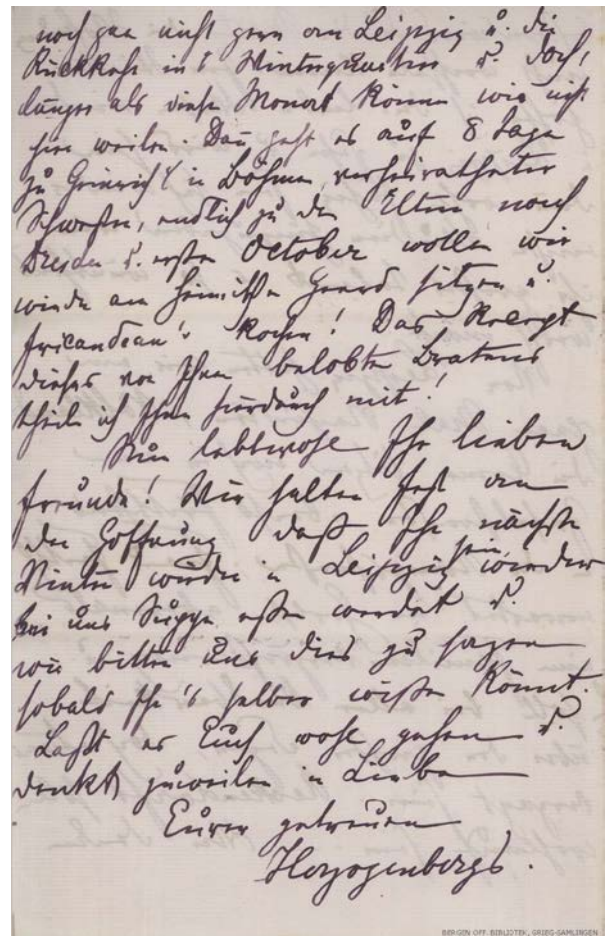 noch gar nicht gern an Leipzig u. die
Rückkehr in's Winterquartier u. doch,
länger als diesen Monat können wir nicht
hier weilen. Dan̄ geht es auf 8 Tage
zu Heinrich's in Böhmen verheiratheter
Schwester, endlich zu den Eltern nach
Dresden u. ersten October wollen wir
wieder am heimischen Heerd sitzen u.
fricandeau's kochen! Das Recept
dieses von Ihnen belobten Bratens
theil ich Ihnen hierdurch mit!
Nun lebtwohl Ihr lieben
Freunde! Wir halten fest an
der Hoffnung daß Ihr nächsten
Winter wieder in Leipzig sein, wieder
bei uns Suppe essen werdet u.
wir bitten uns dies zu sagen
sobald Ihr's selber wißen könnt.
Laßt es Euch wohl gehen u.
denkt zuweilen in Liebe
Eurer getreuen
Herzogenbergs.
BERGEN OFF. BIBLIOTEK, GRIEG-SAMLINGEN